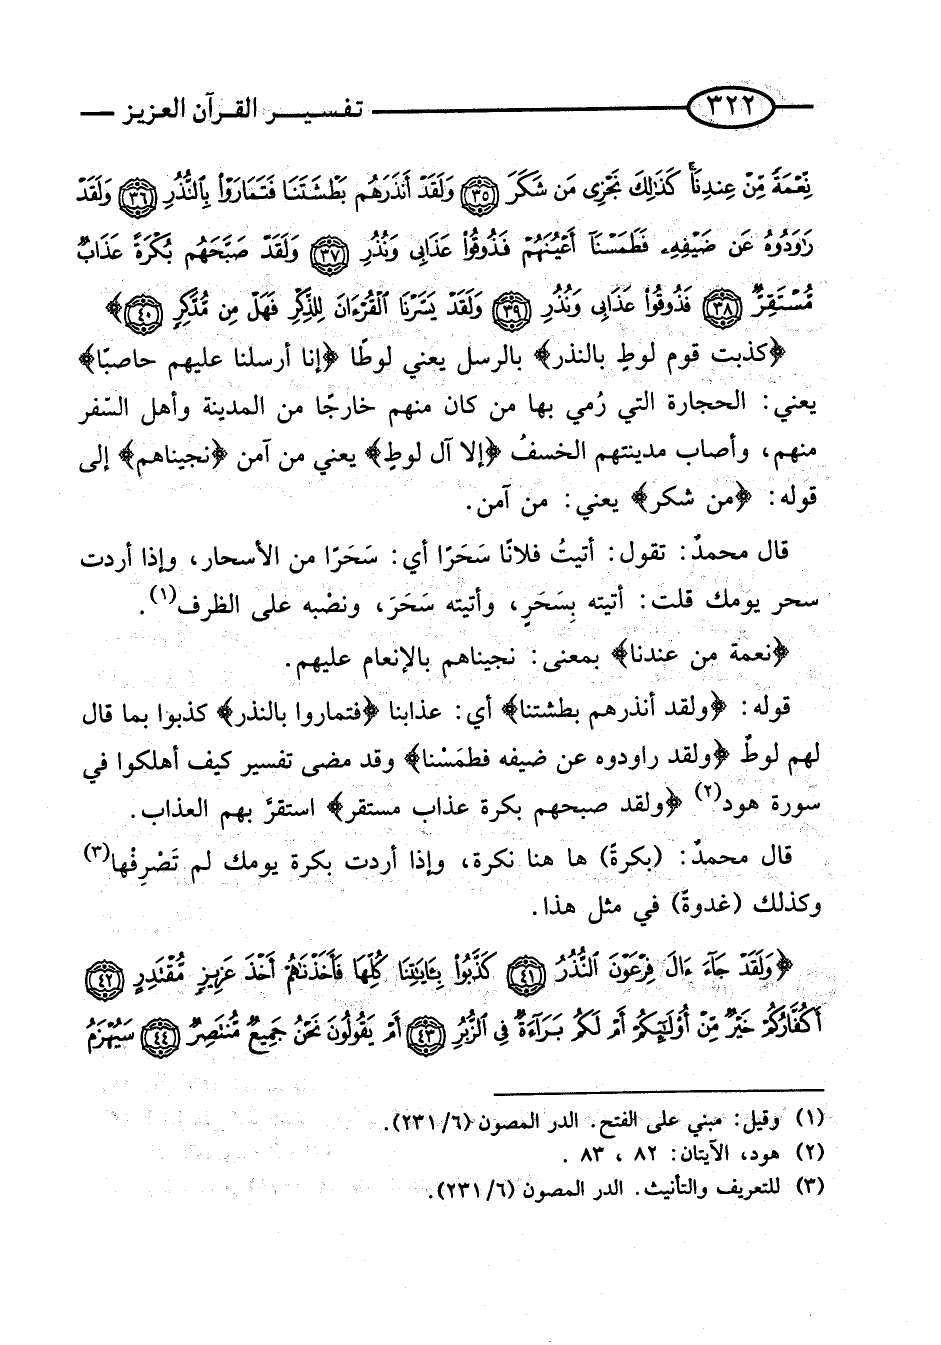 ٣٢٢ تفسير القرآن العزيز
نِعْمَةً مِّنْ عِندِنَا ۚ كَذَٰلِكَ نَجْزِى مَن شَكَرَ ﴿٣٥﴾ وَلَقَدْ أَنذَرَهُم بَطْشَتَنَا فَتَمَارَوْا۟ بِالنُّذُرِ ﴿٣٦﴾ وَلَقَدْ
رَٰوَدُوهُ عَن ضَيْفِهِۦ فَطَمَسْنَآ أَعْيُنَهُمْ فَذُوقُوا۟ عَذَابِى وَنُذُرِ ﴿٣٧﴾ وَلَقَدْ صَبَّحَهُم بُكْرَةً عَذَابٌ
مُّسْتَقِرٌّ ﴿٣٨﴾ فَذُوقُوا۟ عَذَابِى وَنُذُرِ ﴿٣٩﴾ وَلَقَدْ يَسَّرْنَا الْقُرْءَانَ لِلذِّكْرِ فَهَلْ مِن مُّدَّكِرٍ ﴿٤٠﴾ ﴾
﴿كذبت قوم لوطٍ بالنذر﴾ بالرسل يعني لوطًا ﴿إنا أرسلنا عليهم حاصبًا﴾
يعني: الحجارة التي رُمي بها من كان منهم خارجًا من المدينة وأهل السّفر
منهم، وأصاب مدينتهم الخسفُ ﴿إلا آل لوطٍ﴾ يعني من آمن ﴿نجيناهم﴾ إلى
قوله: ﴿من شكر﴾ يعني: من آمن.
قال محمدٌ: تقول: أتيتُ فلانًا سَحَرًا أي: سَحَرًا من الأسحار، وإذا أردت
سحر يومك قلت: أتيته بِسَحَرٍ، وأتيته سَحَرَ، ونصْبه على الظرف(١).
﴿نعمة من عندنا﴾ بمعنى: نجيناهم بالإنعام عليهم.
قوله: ﴿ولقد أنذرهم بطشتنا﴾ أي: عذابنا ﴿فتماروا بالنذر﴾ كذبوا بما قال
لهم لوطٌ ﴿ولقد راودوه عن ضيفه فطمَسْنا﴾ وقد مضى تفسير كيف أهلكوا في
سورة هود(٢) ﴿ولقد صبحهم بكرة عذاب مستقر﴾ استقرَّ بهم العذاب.
قال محمدٌ: (بكرةً) ها هنا نكرة، وإذا أردت بكرة يومك لم تَصْرِفْها(٣)
وكذلك (غدوةً) في مثل هذا.
﴿وَلَقَدْ جَآءَ ءَالَ فِرْعَوْنَ النُّذُرُ ﴿٤١﴾ كَذَّبُوا۟ بِـَٔايَٰتِنَا كُلِّهَا فَأَخَذْنَٰهُمْ أَخْذَ عَزِيزٍ مُّقْتَدِرٍ ﴿٤٢﴾
أَكُفَّارُكُمْ خَيْرٌ مِّنْ أُو۟لَٰٓئِكُمْ أَمْ لَكُم بَرَآءَةٌ فِى الزُّبُرِ ﴿٤٣﴾ أَمْ يَقُولُونَ نَحْنُ جَمِيعٌ مُّنتَصِرٌ ﴿٤٤﴾ سَيُهْزَمُ
(١) وقيل: مبني على الفتح. الدر المصون (٦/ ٢٣١).
(٢) هود، الآيتان: ٨٢ ، ٨٣ .
(٣) للتعريف والتأنيث. الدر المصون (٦/ ٢٣١).